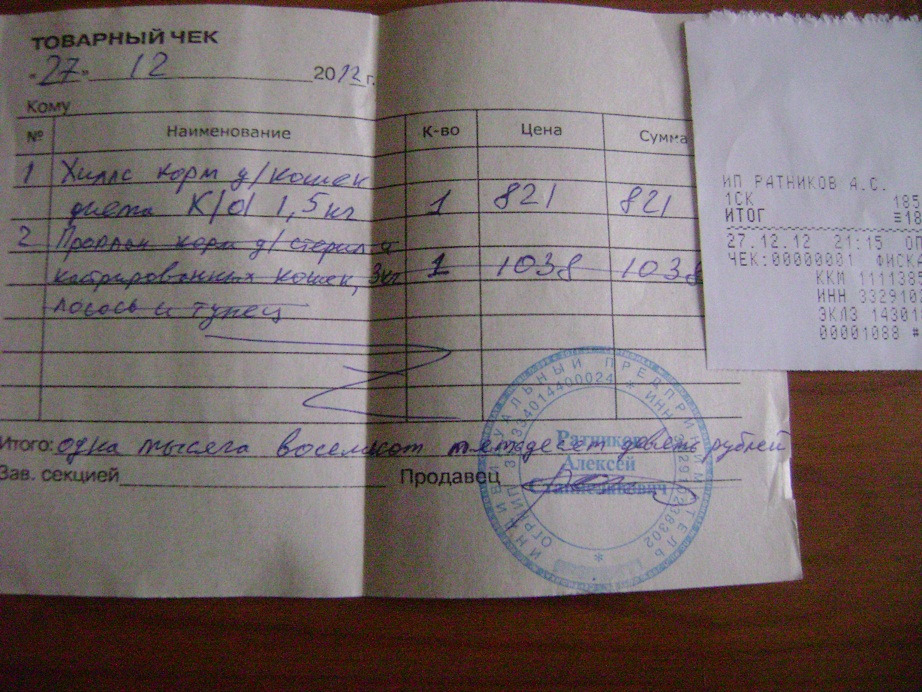 ТОВАРНЫЙ ЧЕК
"27" 12 2012 г.
Кому
№ Наименование К-во Цена Сумма
1 Хиллс корм д/кошек
диета K/d 1,5 кг 1 821 821
2 Проплан корм д/стерил и
кастрированных кошек, 3кг 1 1038 1038
лосось и тунец
Итого: одна тысяча восемьсот пятьдесят девять рублей
Зав. секцией Продавец
ИНДИВИДУАЛЬНЫЙ ПРЕДПРИНИМАТЕЛЬ
Ратников
Алексей
Станиславович
ИП РАТНИКОВ А.С.
1СК 185
ИТОГ ≡18
27.12.12 21:15 ОП
ЧЕК:00000001 ФИСКА
ККМ 1111385
ИНН 3329102
ЭКЛЗ 143018
00001088 #